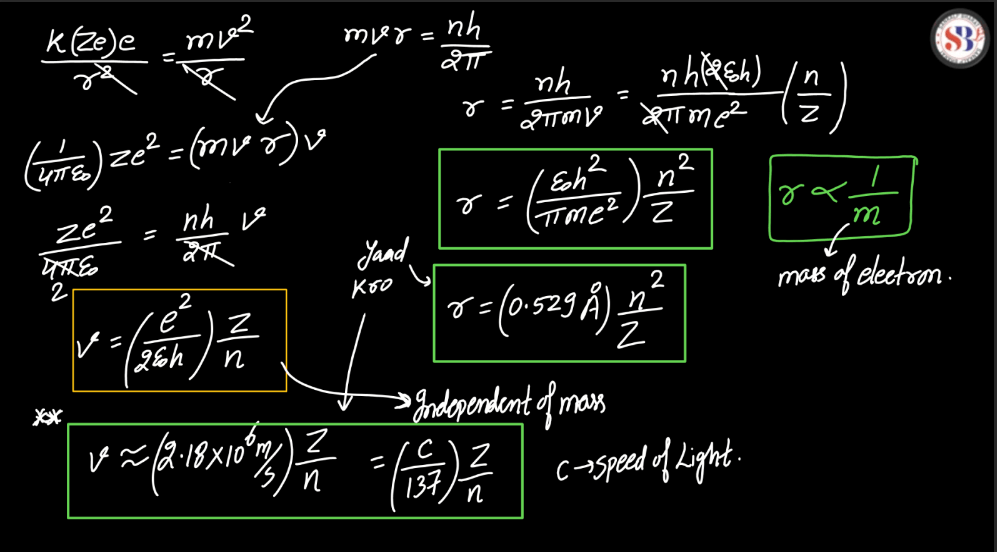 SB
k(Ze)e/r² = mv²/r
mvr = nh/2π
r = nh/2πmv = nh(2ε₀h)/2πme² (n/Z)
(1/4πε₀) ze² = (mvr)v
r = (ε₀h²/πme²) n²/Z
r ∝ 1/m
mass of electron.
ze²/4πε₀ = nh/2π v
2
Yaad
Kro
r = (0.529 Å) n²/Z
v = (e²/2ε₀h) Z/n
Independent of mass
**
v ≈ (2.18×10⁶ m/s) Z/n = (C/137) Z/n
C → speed of Light.